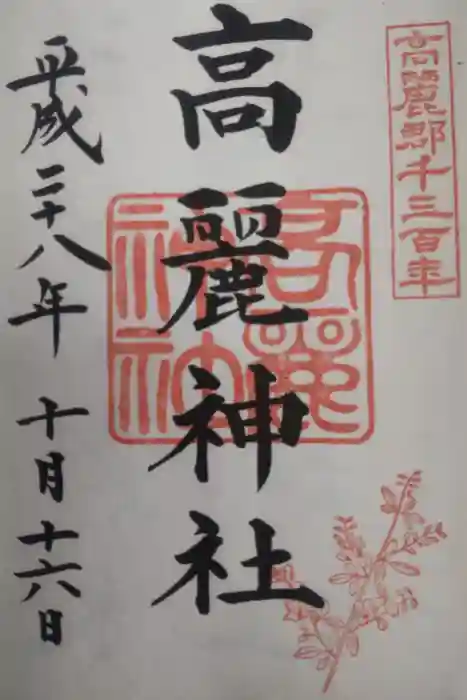 高麗郡千三百年
高麗神社
平成二十八年 十月十六日
高麗
神社